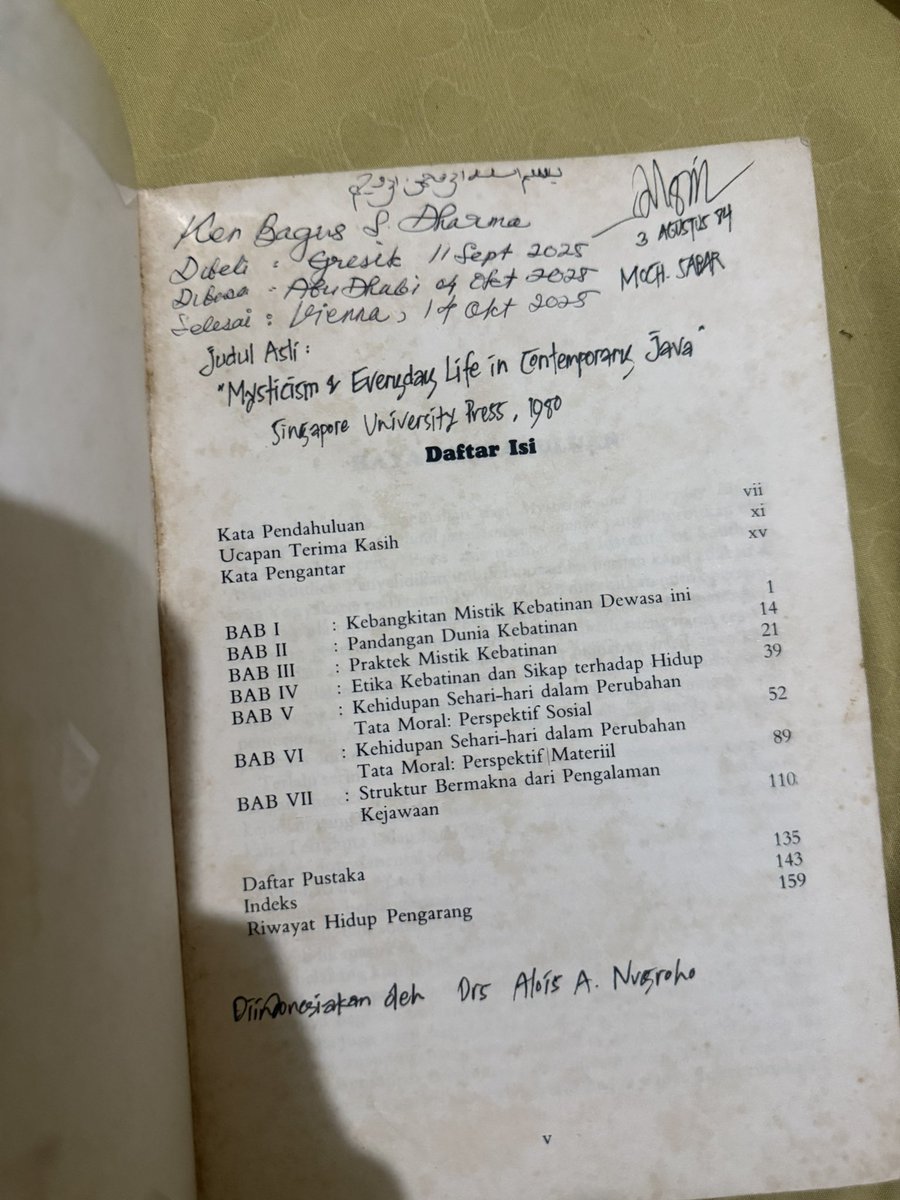 بسم الله الرحمن الرحيم
Ken Bagus S. Dharma
3 AGUSTUS 84
Dibeli : Gresik 11 Sept 2025
MOCH. SABAR
Dibawa : Abu Dhabi 04 Okt 2025
Selesai : Vienna, 14 Okt 2025
Judul Asli :
"Mysticism & Everyday Life in Contemporary Java"
Singapore University Press, 1980
Daftar Isi
Kata Pendahuluan vii
Ucapan Terima Kasih xi
Kata Pengantar xv
BAB I : Kebangkitan Mistik Kebatinan Dewasa ini 1
BAB II : Pandangan Dunia Kebatinan 14
BAB III : Praktek Mistik Kebatinan 21
BAB IV : Etika Kebatinan dan Sikap terhadap Hidup 39
BAB V : Kehidupan Sehari-hari dalam Perubahan
Tata Moral: Perspektif Sosial 52
BAB VI : Kehidupan Sehari-hari dalam Perubahan
Tata Moral: Perspektif Materiil 89
BAB VII : Struktur Bermakna dari Pengalaman
Kejawaan 110
Daftar Pustaka 135
Indeks 143
Riwayat Hidup Pengarang 159
Diindonesiakan oleh Drs Alois A. Nugroho
v